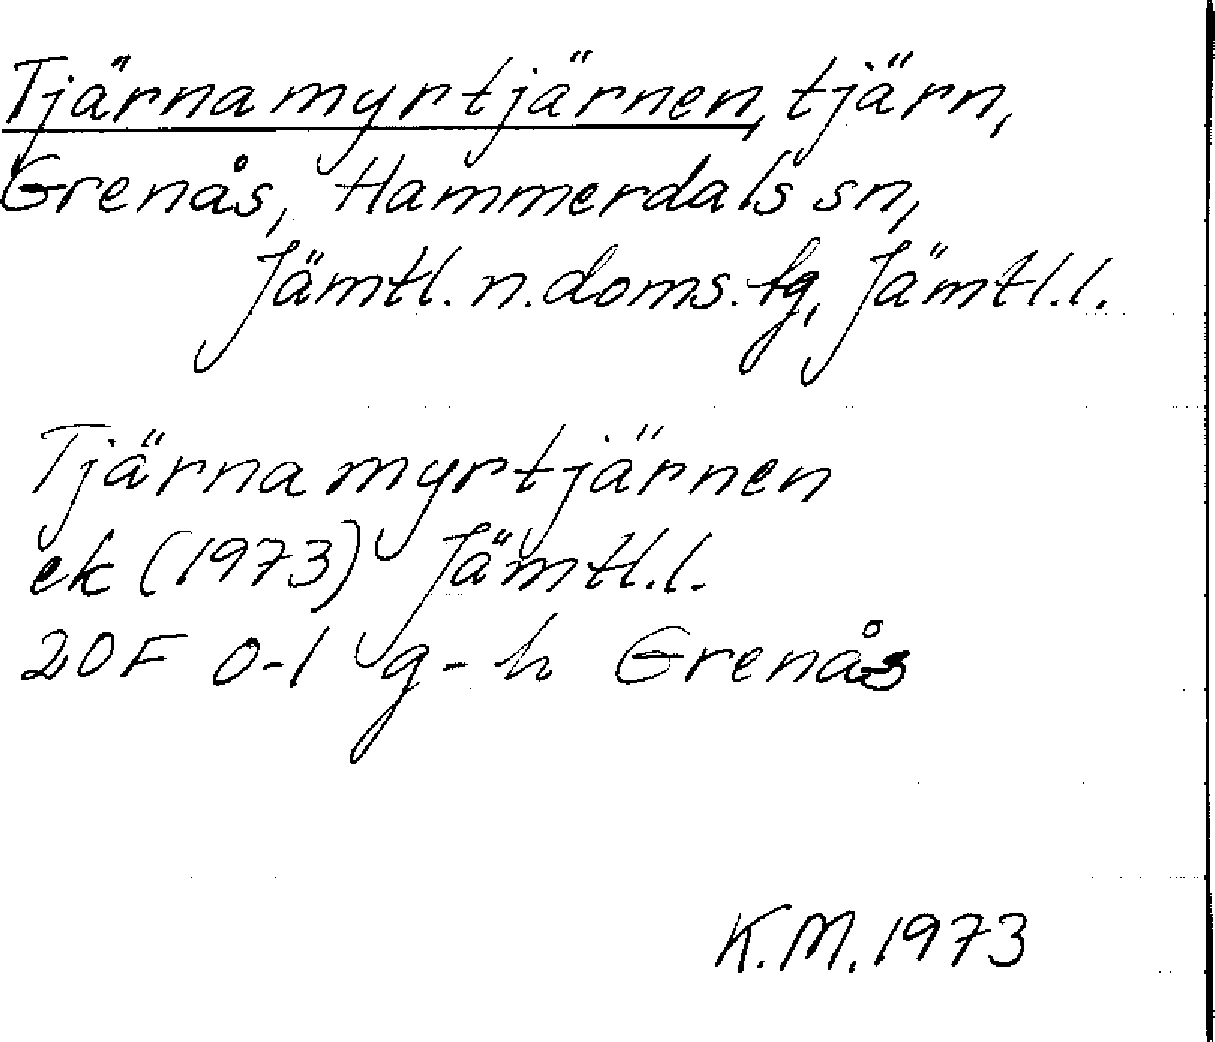 Tjärnamyrtjärnen, tjärn,
Grenås, Hammerdals sn,
Jämtl. n. doms. fg, Jämtl. l.
Tjärnamyrtjärnen
ek (1973) Jämtl. l.
20F 0-1 g-h Grenås
K.M. 1973